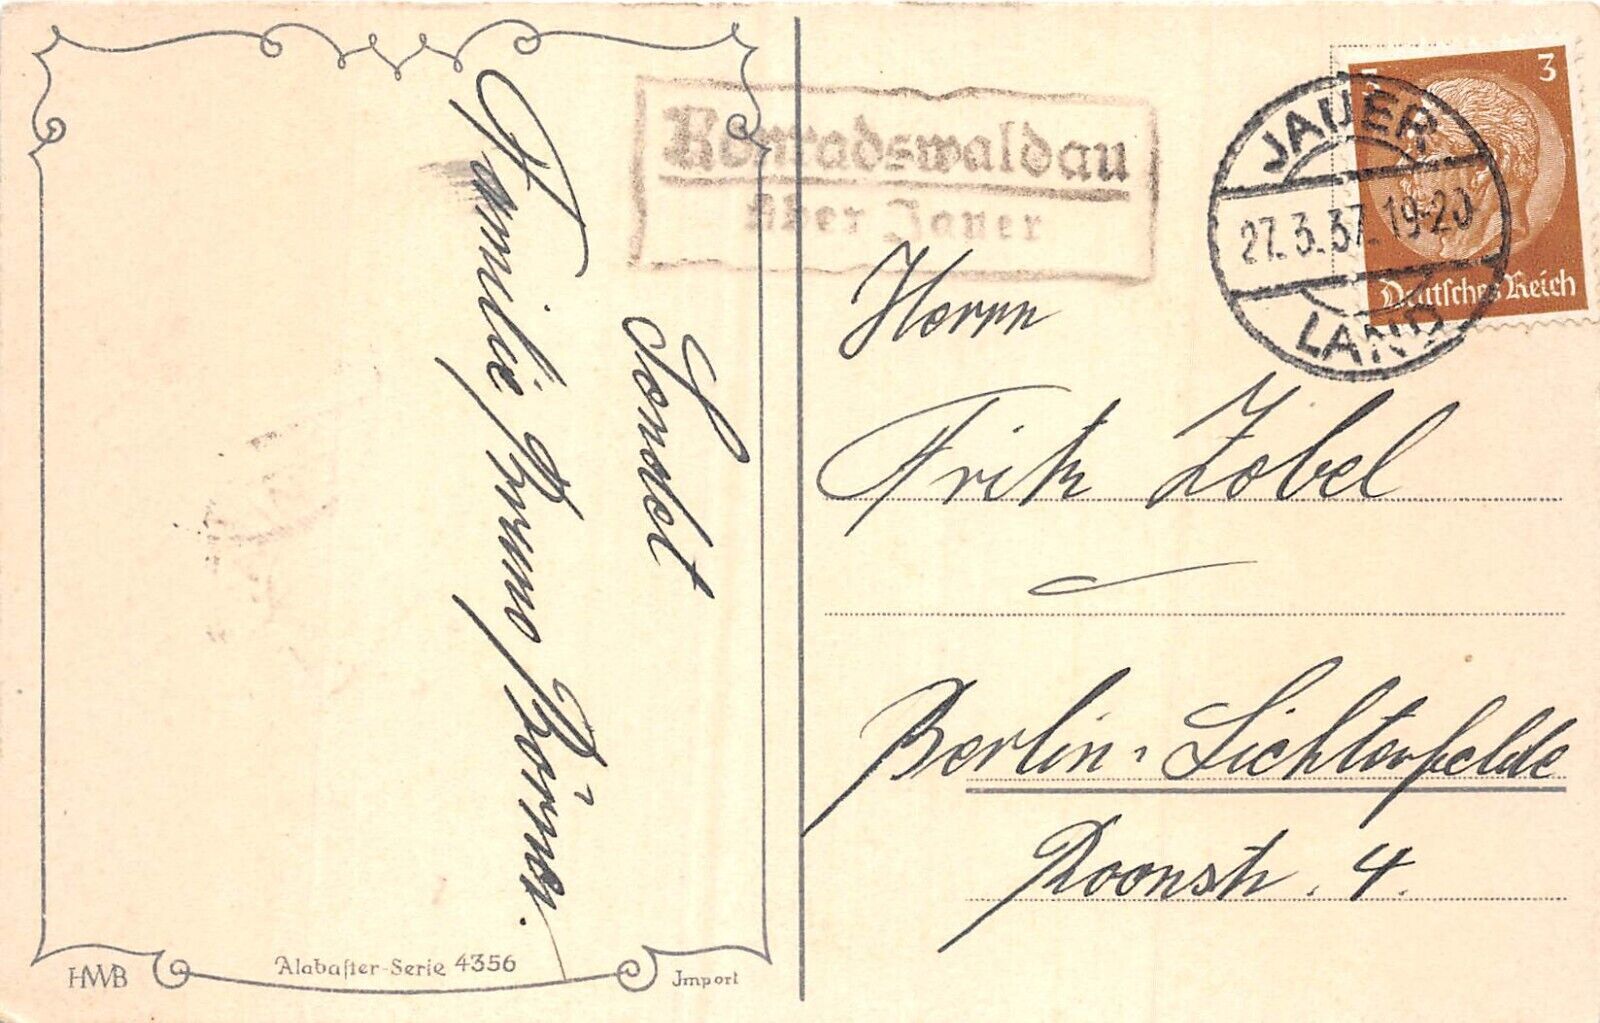 Sendet
Familie Bruno Börner.
Konradswaldau
über Jauer
JAUER
27.3.37.19-20
LAND
3 3
Deutsches Reich
Herrn
Fritz Zobel
Berlin-Lichterfelde
Roonstr. 4.
HWB
Alabaſter-Serie 4356
Import